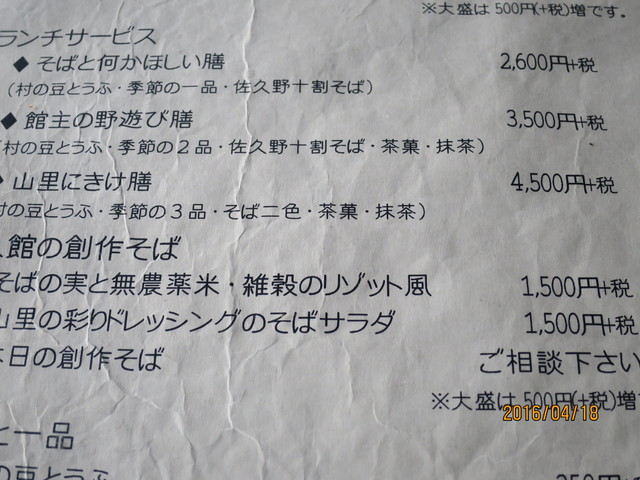 ※大盛は500円(+税)増です。
ランチサービス
◆そばと何かほしい膳 2,600円+税
(村の豆とうふ・季節の一品・佐久野十割そば)
◆館主の野遊び膳 3,500円+税
村の豆とうふ・季節の2品・佐久野十割そば・茶菓・抹茶)
山里にきけ膳 4,500円+税
の豆とうふ・季節の3品・そば二色・茶菓・抹茶)
館の創作そば
そばの実と無農薬米・雑穀のリゾット風 1,500円+税
山里の彩りドレッシングのそばサラダ 1,500円+税
本日の創作そば ご相談下さい
※大盛は500円(+税)増
2016/04/18
一品
の豆とうふ